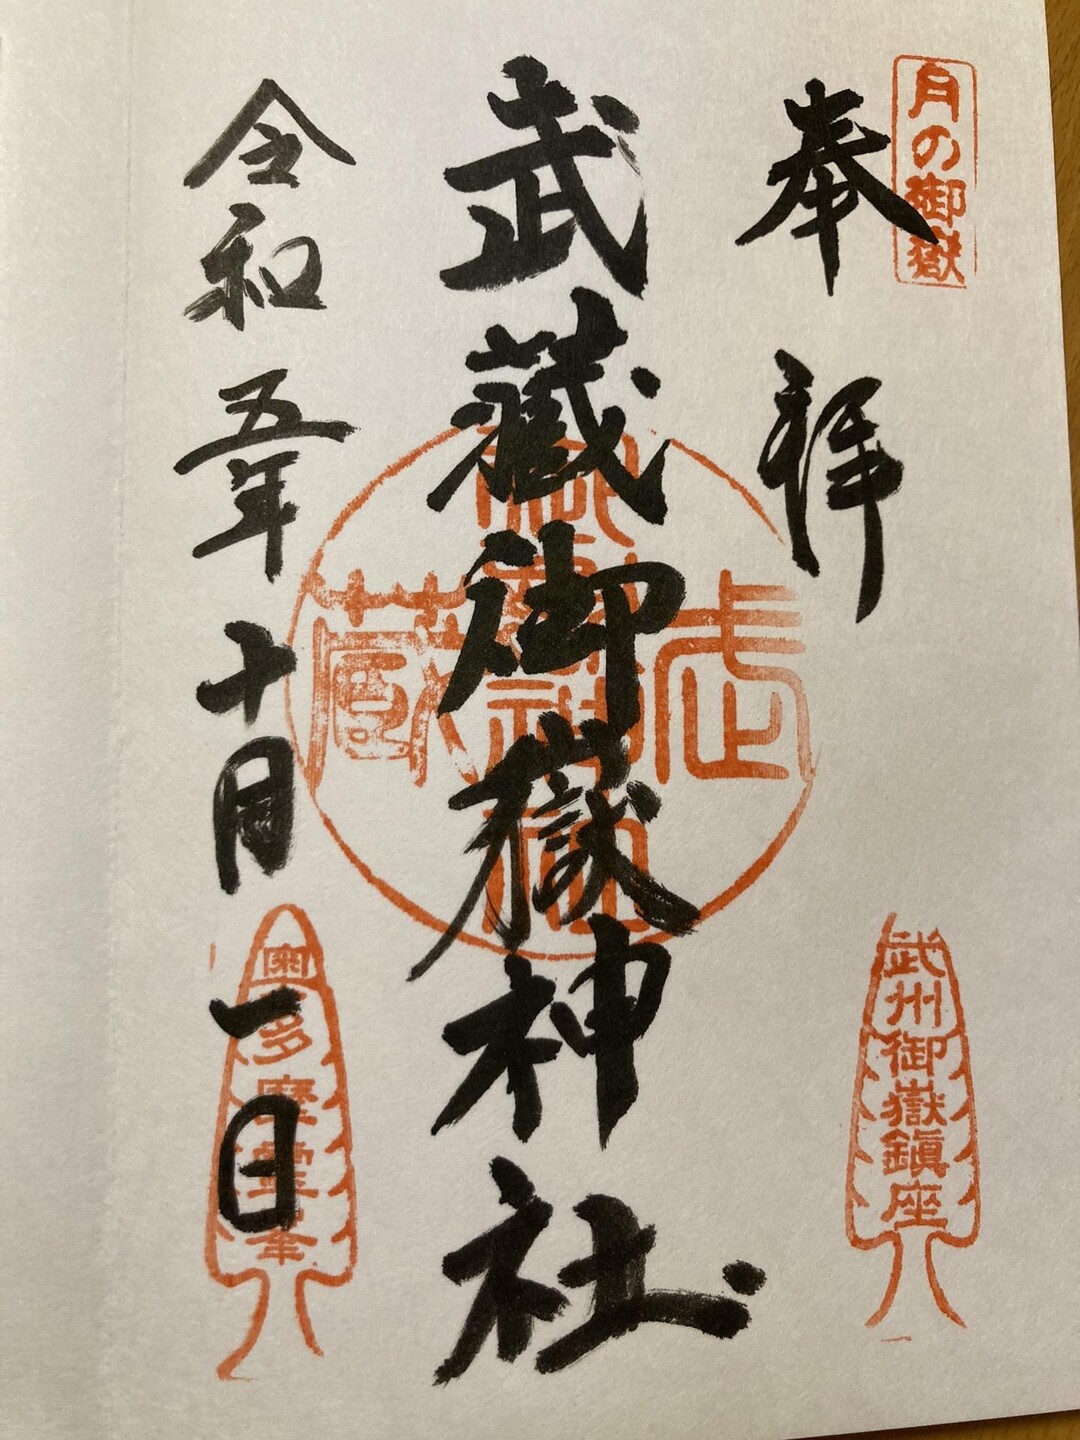 月の御嶽
奉拝
武州御嶽鎮座
武蔵御嶽神社
武蔵
令和五年十月一日
奥多摩霊峯